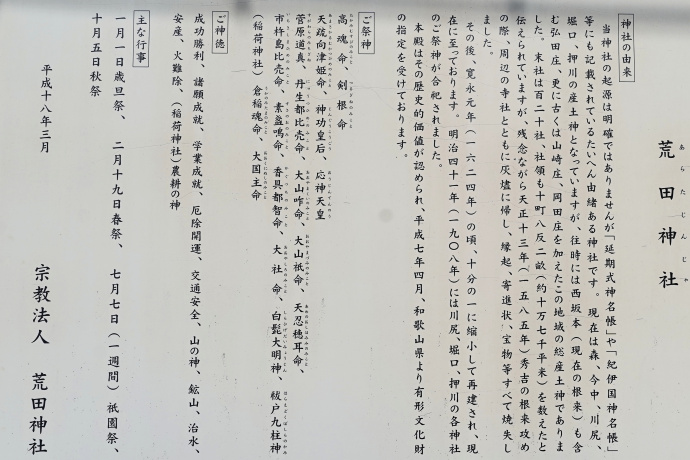 荒田神社
あらたじんじゃ
神社の由来
当神社の起源は明確ではありませんが「延期式神名帳」や「紀伊国神名帳」
等にも記載されているたいへん由緒ある神社です。現在は森、今中、川尻、
堀口、押川の産土神となっていますが、往時には西坂本（現在の根来）も含
む弘田庄、更に古くは山崎庄、岡田庄を加えたこの地域の総産土神でありま
した。末社は百二十社、社領も十町八反二畝（約十万七千平米）を数えたと
伝えられていますが、残念ながら天正十三年（一五八五年）秀吉の根来攻め
の際、周辺の寺社とともに灰燼に帰し、縁起、寄進状、宝物等すべて焼失し
ました。
その後、寛永元年（一六二四年）の頃、十分の一に縮小して再建され、現
在に至っております。明治四十一年（一九〇八年）には川尻、堀口、押川の各神社
のご祭神が合祀されました。
本殿はその歴史的価値が認められ、平成七年四月、和歌山県より有形文化財
の指定を受けております。
ご祭神
高魂命、剣根命
天疏向津姫命、神功皇后、応神天皇
菅原道真、丹生都比売命、大山咋命、大山祇命、天忍穂耳命、
市杵島比売命、素盞鳴命、香具都智命、大社命、白髭大明神、祓戸九柱神
（稲荷神社）倉稲魂命、大国主命
ご神徳
成功勝利、諸願成就、学業成就、厄除開運、交通安全、山の神、鉱山、治水、
安産、火難除、（稲荷神社）農耕の神
主な行事
一月一日歳旦祭、二月十九日春祭、七月七日（一週間）祇園祭、
十月五日秋祭
平成十八年三月
宗教法人　荒田神社